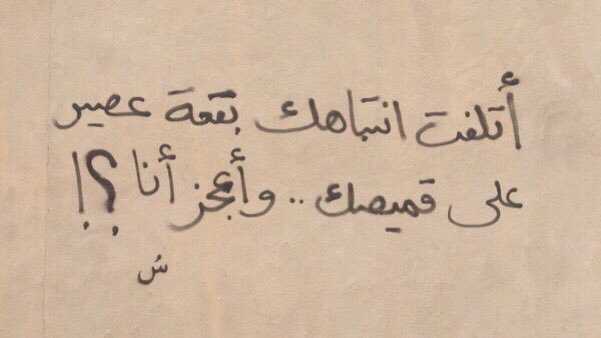 أتلفت انتباهك بقعة عصير
على قميصك .. وأعجز أنا ؟!
سُ